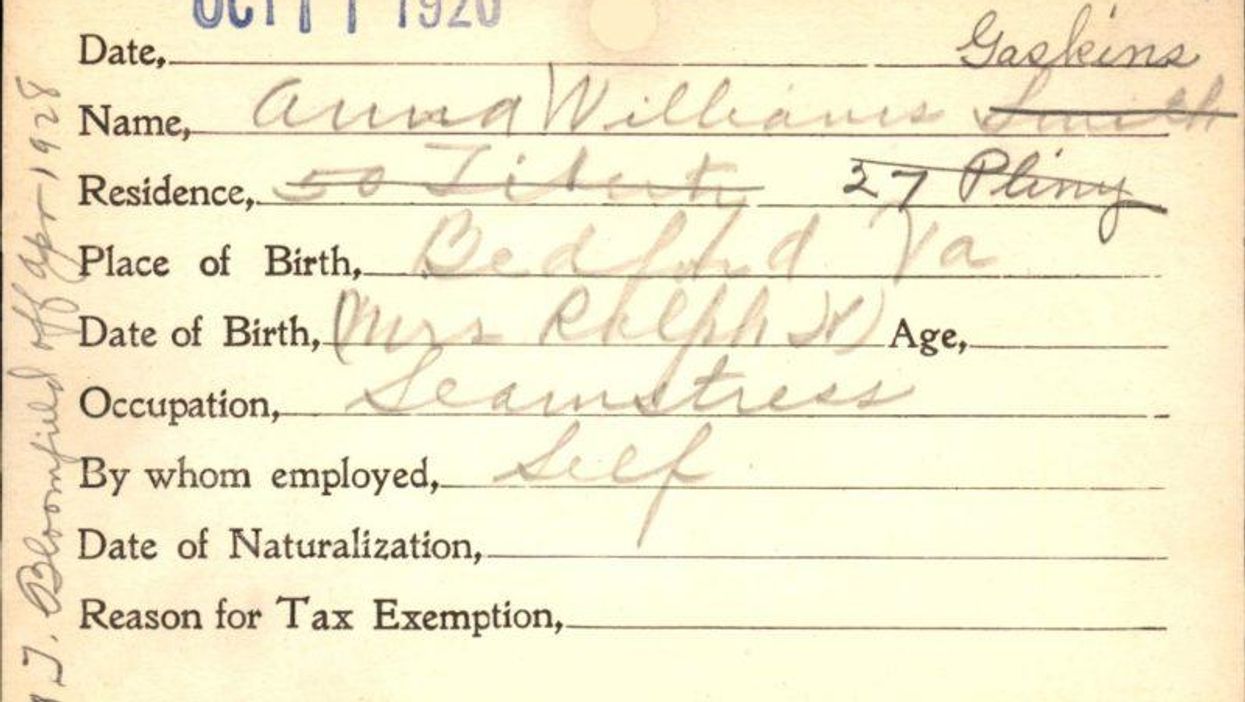 OCT 11 1920
Date, Gaskins
Name, Anna Williams Smith
Residence, 50 Liberty 27 Pliny
Place of Birth, Bedford Va
Date of Birth, (Mrs Ralph W) Age,
Occupation, Seamstress
By whom employed, Self
Date of Naturalization,
Reason for Tax Exemption,
T. Bloomfield off Apr 1928